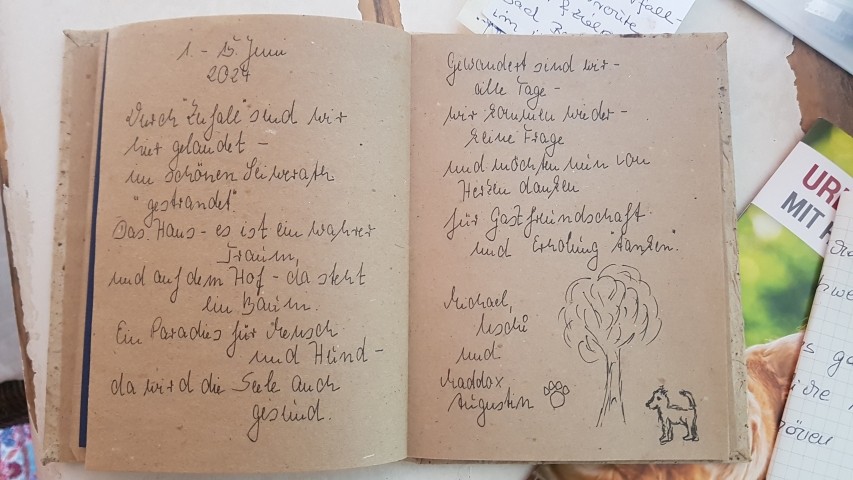 1. - 15. Juni
2024
Durch "Zufall" sind wir
hier gelandet -
im schönen Seiwerath
"gestrandet".
Das Haus - es ist ein wahrer
Traum,
und auf dem Hof - da steht
ein Baum.
Ein Paradies für Mensch
und Hund -
da wird die Seele auch
gesund.
Gewandert sind wir -
alle Tage -
wir kommen wieder -
keine Frage
und möchten nun von
Herzen danken
für Gastfreundschaft
und Erholung "tanken".
Michael,
Uschi
und
Maddox
Augustin
URL
MIT